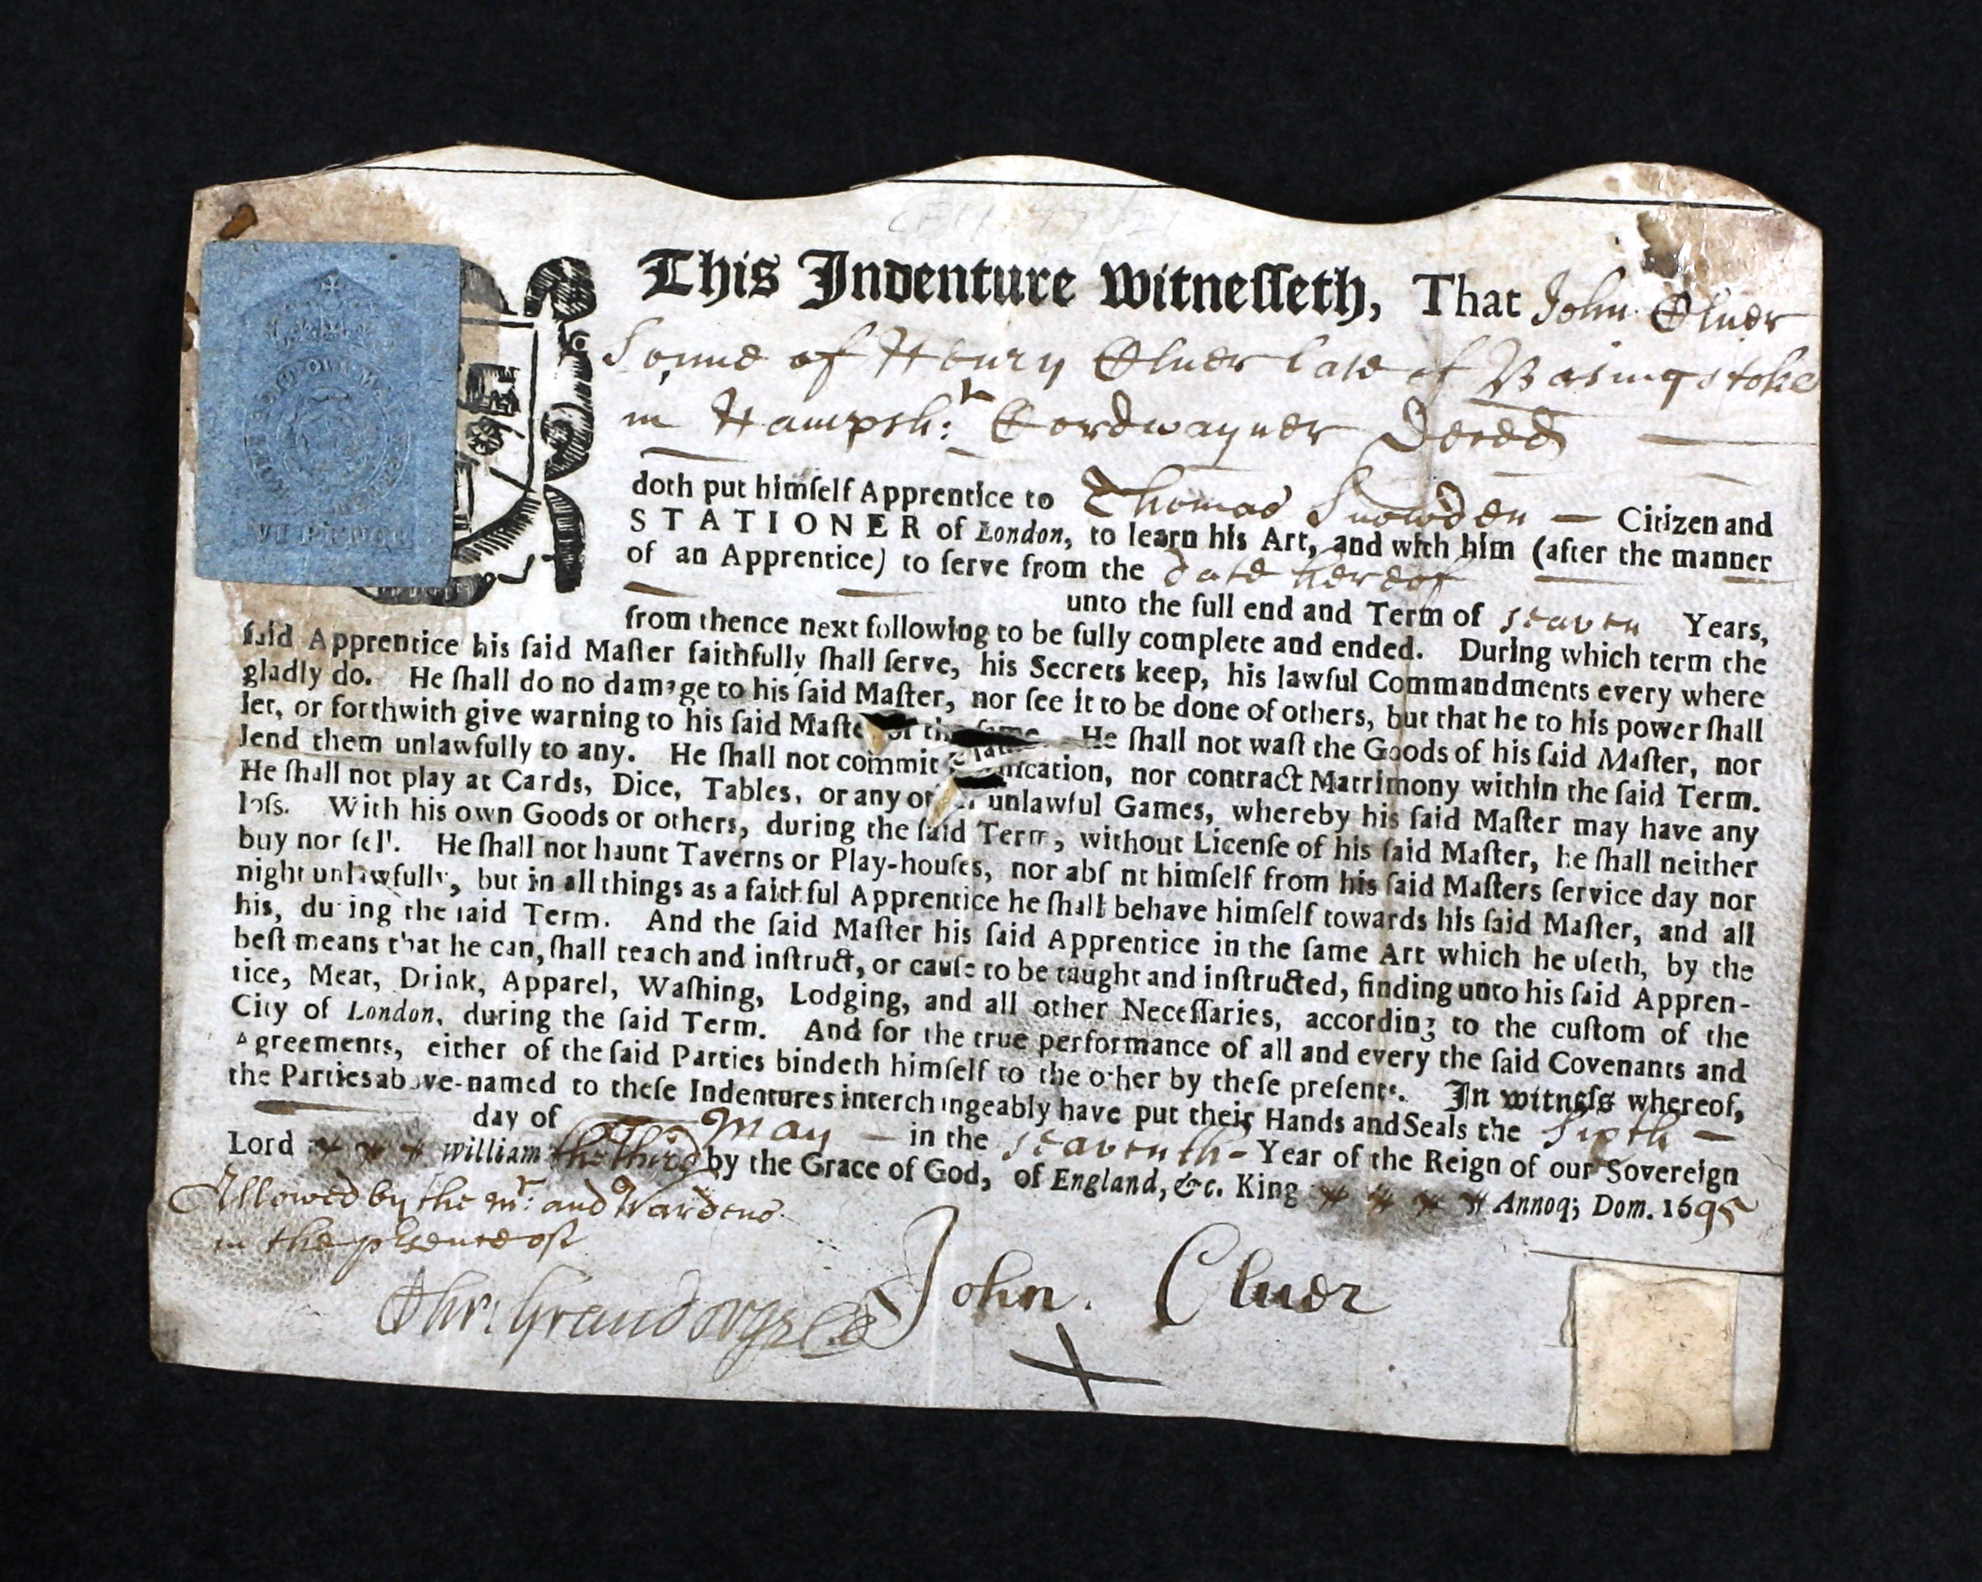 This Indenture Witnesseth, That John Cluer
Sonne of Henry Cluer late of Basingstoke
in Hampshr: Cordwayner Deced
doth put himſelf Apprentice to Thomas Snowden — Citizen and
STATIONER of London, to learn his Art, and with him (after the manner
of an Apprentice) to ſerve from the date hereof
unto the full end and Term of seaven Years,
from thence next following to be fully complete and ended. During which term the
ſaid Apprentice his ſaid Maſter faithfully ſhall ſerve, his Secrets keep, his lawful Commandments every where
gladly do. He ſhall do no damage to his ſaid Maſter, nor ſee it to be done of others, but that he to his power ſhall
let, or forthwith give warning to his ſaid Maſter of the ſame. He ſhall not waſt the Goods of his ſaid Maſter, nor
lend them unlawfully to any. He ſhall not commit nication, nor contract Matrimony within the ſaid Term.
He ſhall not play at Cards, Dice, Tables, or any other unlawful Games, whereby his ſaid Maſter may have any
loſs. With his own Goods or others, during the ſaid Term, without Licenſe of his ſaid Maſter, he ſhall neither
buy nor ſell. He ſhall not haunt Taverns or Play-houſes, nor abſ nt himſelf from his ſaid Maſters ſervice day nor
night unlawfully, but in all things as a faithful Apprentice he ſhall behave himſelf towards his ſaid Maſter, and all
his, du ing the ſaid Term. And the ſaid Maſter his ſaid Apprentice in the ſame Art which he uſeth, by the
beſt means that he can, ſhall teach and inſtruct, or cauſe to be taught and inſtructed, finding unto his ſaid Appren-
tice, Meat, Drink, Apparel, Waſhing, Lodging, and all other Neceſſaries, according to the cuſtom of the
City of London, during the ſaid Term. And for the true performance of all and every the ſaid Covenants and
Agreements, either of the ſaid Parties bindeth himſelf to the other by theſe preſents. In witneſs whereof,
the Parties above-named to theſe Indentures interchangeably have put their Hands and Seals the Sixth —
day of May — in the seaventh - Year of the Reign of our Sovereign
Lord William the Third by the Grace of God, of England, &c. King Annoq; Dom. 1695
Allowed by the Mr: and Wardens
in the presence of
John. Cluer
Chr: Grandorge Cle
VI PENCE